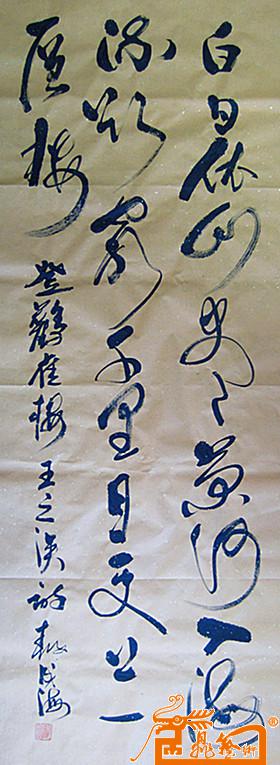 白日依山尽黄河入海
流欲穷千里目更上一
层楼 登鹳雀楼 王之涣诗